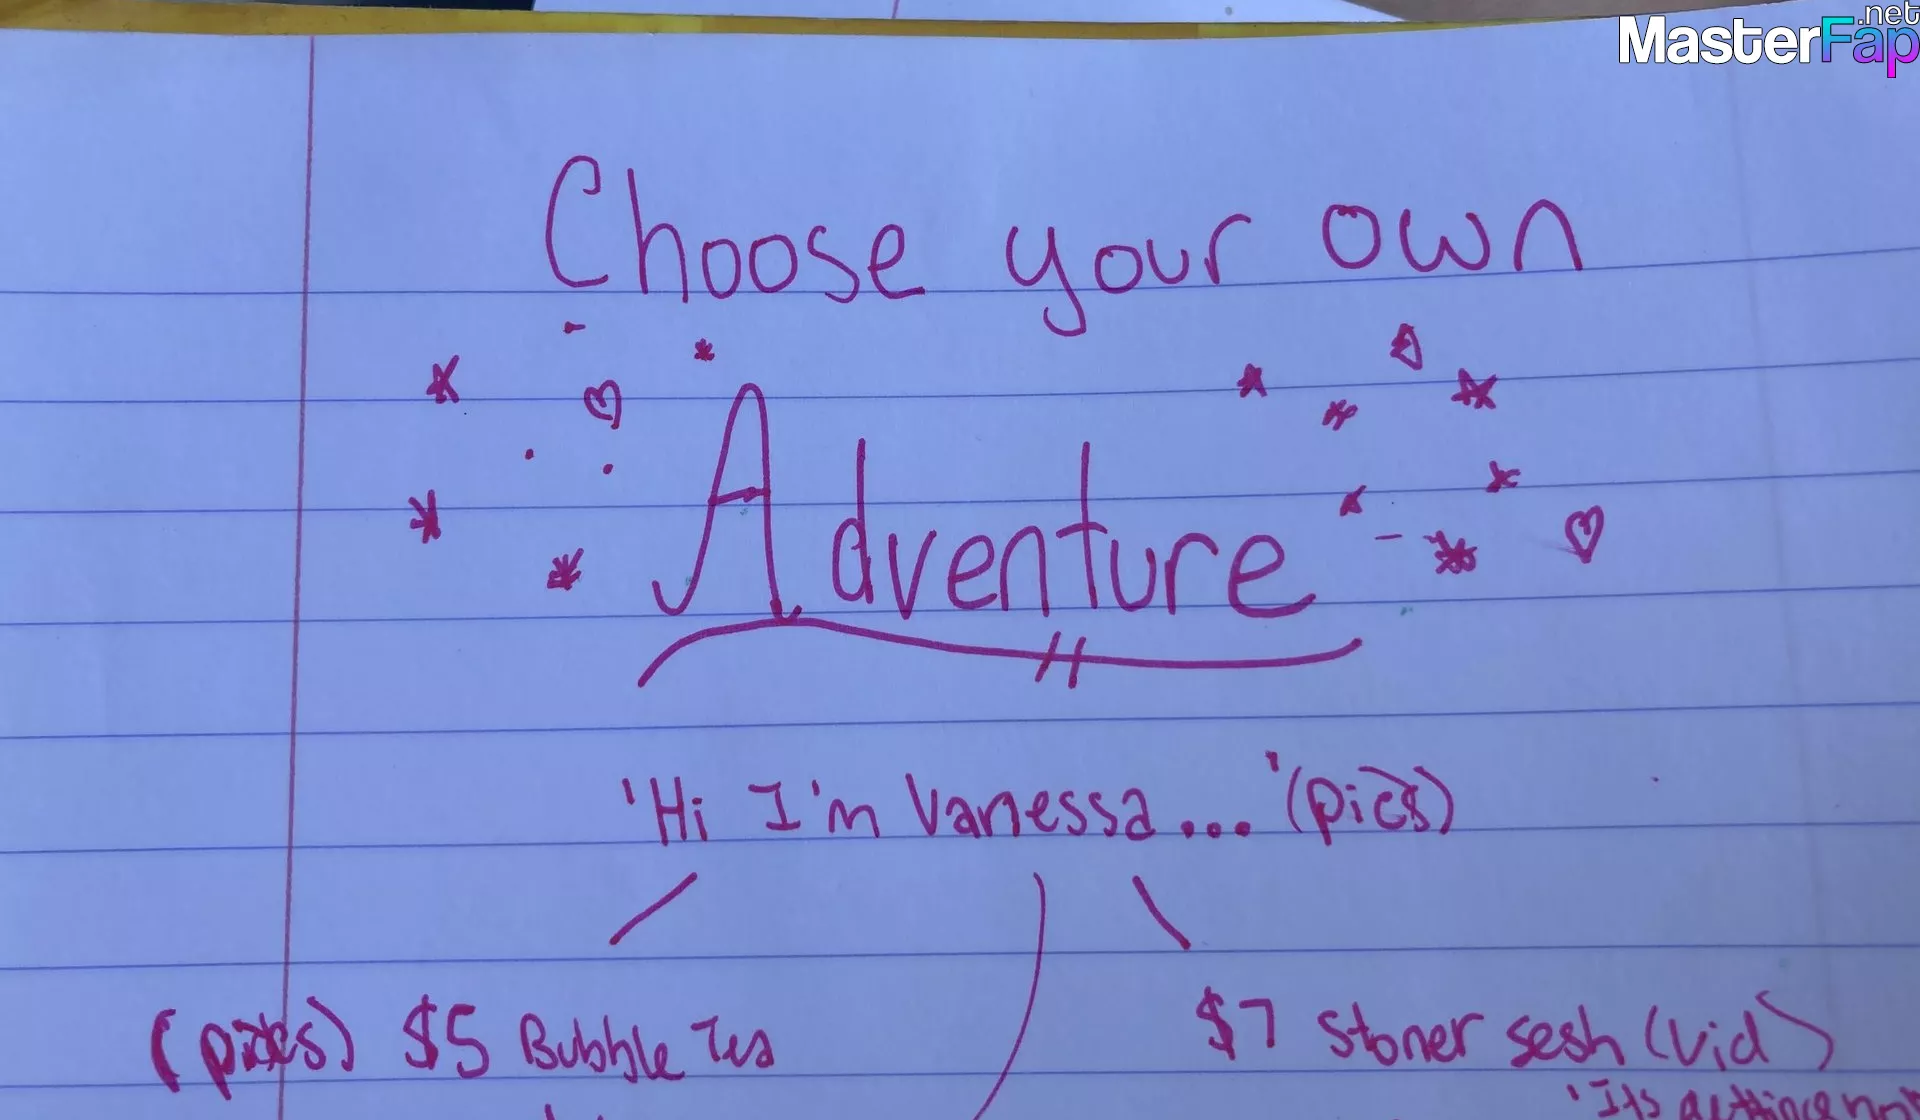 .net
MasterFap
Choose your own
Adventure
'Hi I'm Vanessa...' (pics)
(pics) $5 Bubble Tea
$7 Stoner sesh (vid)
'Its getting